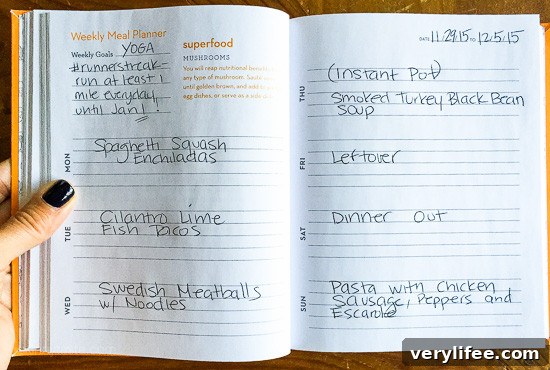 Weekly Meal Planner
Weekly Goals YOGA
#runnerstreak-
run at least 1
mile everyday
until Jan 1!
superfood
MUSHROOMS
You will reap nutritional
any type of mushroom.
until golden brown, and add
egg dishes, or serve as a
MON
Spaghetti Squash
Enchiladas
TUE
Cilantro Lime
Fish Tacos
WED
Swedish Meatballs
w/ Noodles
DATE 11.29.15 TO 12.5.15
THU
(Instant Pot)
Smoked Turkey Black Bean
Soup
FRI
Leftover
SAT
Dinner Out
SUN
Pasta with Chicken
Sausage, Peppers and
Escarole
verylifee.com